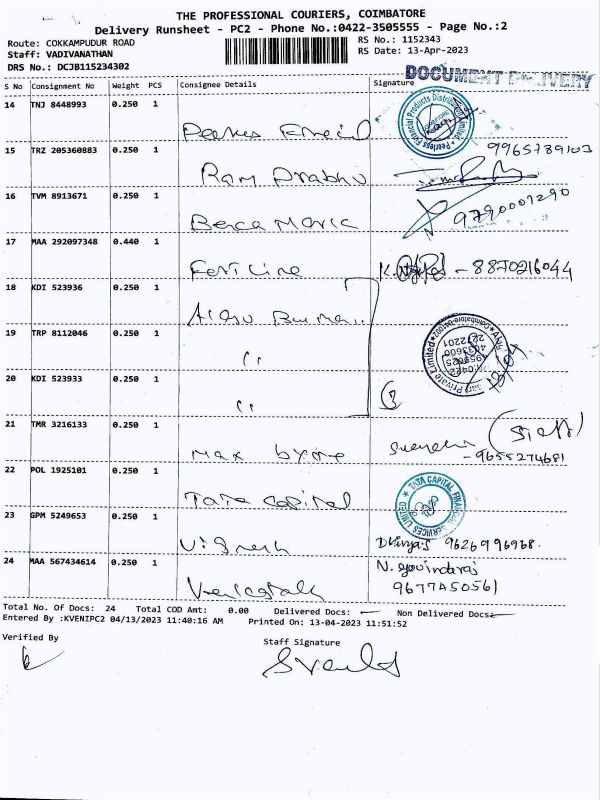 THE PROFESSIONAL COURIERS, COIMBATORE
Delivery Runsheet - PC2 - Phone No.:0422-3505555 - Page No.:2
Route: COKKAMPUDUR ROAD
RS No.: 1152343
Staff: VADIVANATHAN
RS Date: 13-Apr-2023
DRS No.: DCJB115234302
DOCUMENT DELIVERY
S No Consignment No Weight PCS Consignee Details Signature
14 TNJ 8448993 0.250 1
Peerless Financial Products Distribution Limited
15 TRZ 205360883 0.250 1 Ram Prabhu 9965789103
16 TVM 8913671 0.250 1 9790001290
17 MAA 292097348 0.440 1 - 8870216044
18 KDI 523936 0.250 1
19 TRP 8112046 0.250 1 ''
Private Limited
20 KDI 523933 0.250 1 '' 3
21 TMR 3216133 0.250 1 Max (Staff)
- 9655274681
22 POL 1925101 0.250 1 Tata Capital
TATA CAPITAL FINANCIAL SERVICES LIMITED
23 GPM 5249653 0.250 1 Vignesh 9626996968.
24 MAA 567434614 0.250 1 N. Govindaraj
9677450561
Total No. Of Docs: 24 Total COD Amt: 0.00 Delivered Docs: Non Delivered Docs:
Entered By :KVENIPC2 04/13/2023 11:40:16 AM Printed On: 13-04-2023 11:51:52
Verified By
Staff Signature